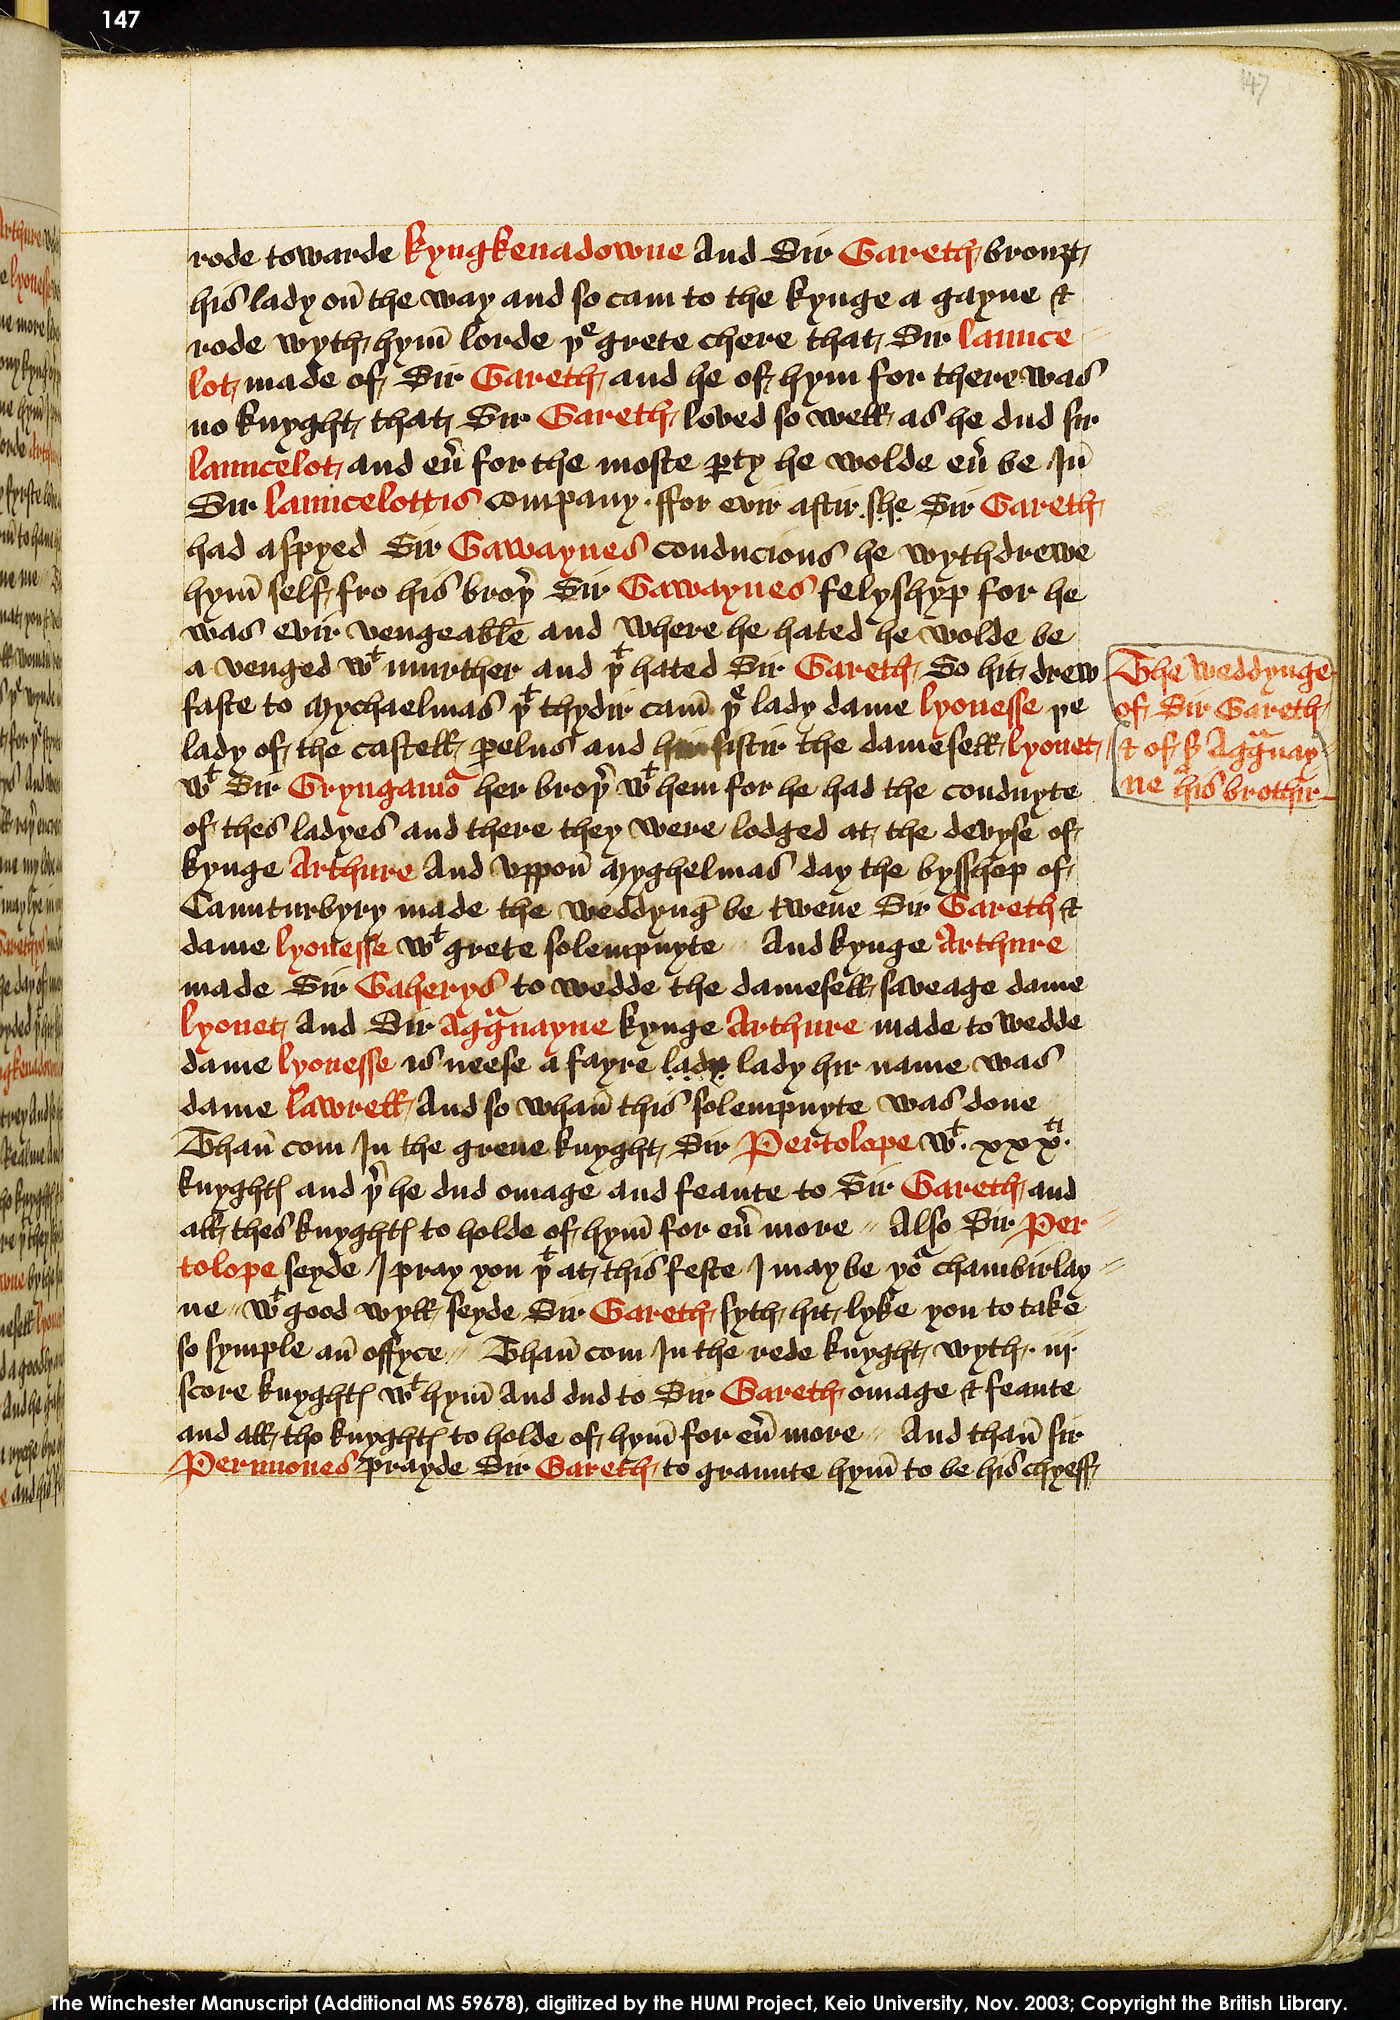 147
147
rode towarde kyngkenadowne And Sir Gareth brouȝt
his lady oñ the way and so cam to the kynge a gayne &
rode wyth hym̄ lorde þe grete chere that Sir launce
lot made of Sir Gareth and he of hym for there was
no knyght that Sir Gareth loved so well as he dud sir
launcelot and eũ for the moste ꝑty he wolde eũ be Iñ
Sir launcelottis company · ffor evir aftir she Sir Gareth
had aspyed Sir Gawaynes conducions he wythdrewe
hym̄ self fro his broþ̉ Sir Gawaynes felyshyp for he
was evir vengeable and where he hated he wolde be
a venged wt murther and þt hated Sir Gareth So hit drew
faste to Mychaelmas þt thydir cam̄ þe lady dame lyonesse þe
lady of the castell ꝑelus and hir sistir the damesell lyonet
wt Sir Gryngamoa her broþ̉ wt hem for he had the conduyte
of thes ladyes and there they were lodged at the devyse of
kynge Arthure And vppoñ Myghelmas day the bysshop of
Caunturbyry made the weddyng̃ be twene Sir Gareth &
dame lyonesse wt grete solempnyte And kynge Arthure
made Sir Gaherys to wedde the damesell saveage dame
lyonet And Sir Aggauayne kynge Arthure made to wedde
dame lyonesse is neese a fayre lady lady hir name was
dame lawrell And so whañ this solempnyte was done
Thañ com In the grene knyght Sir Pertolope wt · xxxti ·
knyghtꝭ and þ̉ he dud omage and feaute to Sir Gareth and
all thes knyghtꝭ to holde of hym̄ for eũ more " Also Sir Per
tolope seyde I pray you þt at this feste I may be yoa chambirlay
ne " wt good wyll seyde Sir Gareth syth hit lyke you to take
so symple añ offyce " Thañ com In the rede knyght wyth · iij ·
score knyghtꝭ wt hym̄ And dud to Sir Gareth omage & feaute
and all tho knyghtꝭ to holde of hym̄ for eũ more " And thañ sir
Perimones prayde Sir Gareth to graunte hym̄ to be his chyeff
The weddynge
of Sir Gareth
& of sir Aggauay
ne his brothir
The Winchester Manuscript (Additional MS 59678), digitized by the HUMI Project, Keio University, Nov. 2003; Copyright the British Library.